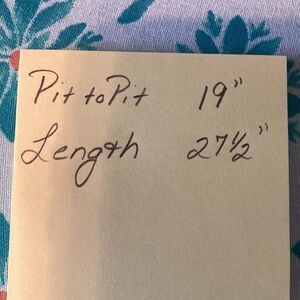 Pit to Pit 19"
Length 27½"